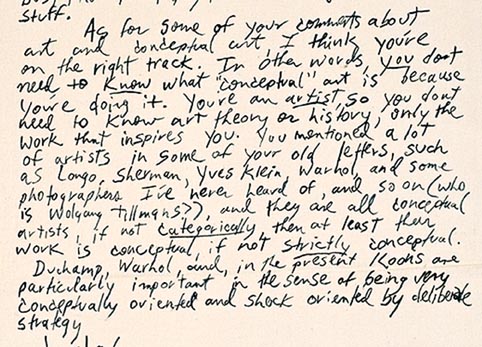 stuff.
As for some of your comments about
art and conceptual art, I think you're
on the right track. In other words, you don't
need to know what "conceptual" art is because
you're doing it. You're an artist, so you don't
need to know art theory or history, only the
work that inspires you. You mentioned a lot
of artists in some of your old letters, such
as Longo, Sherman, Yves Klein, Warhol, and some
photographers I've never heard of, and so on (who
is Wolgang Tillmans?), and they are all conceptual
artists, if not categorically, then at least their
work is conceptual, if not strictly conceptual.
Duchamp, Warhol, and, in the present Koons are
particularly important in the sense of being very
conceptually oriented and shock oriented by deliberate
strategy